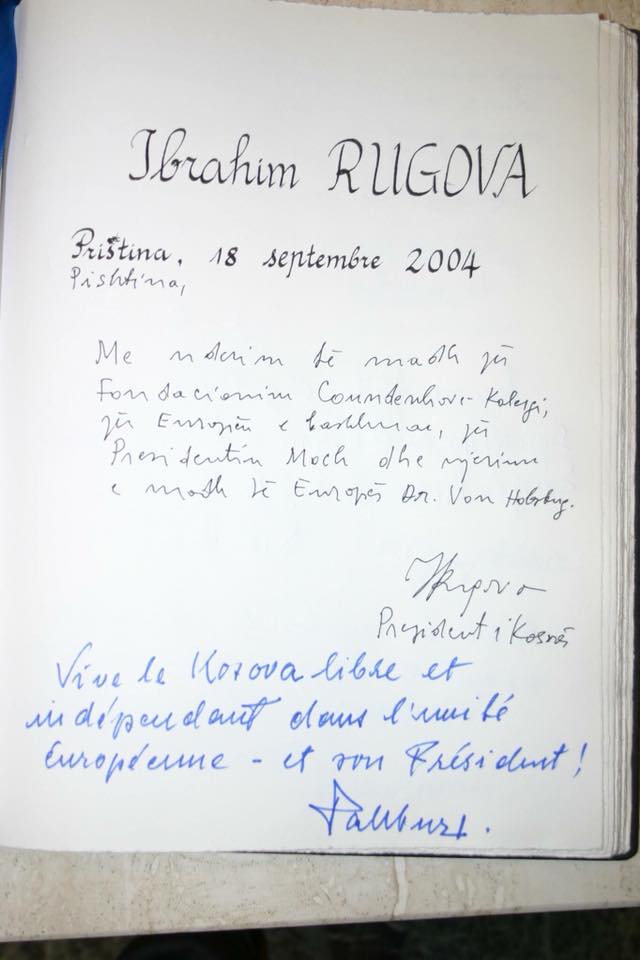 Ibrahim RUGOVA
Priština, 18 septembre 2004
Pishtina,
Me nderim të madh për
Fondacionin Coundenhove-Kalergi,
për Europën e bashkuar, për
Presidentin Moch dhe njeriun
e madh të Europës Dr. Von Habsburg.
IRugova
President i Kosovës
Vive le Kosova libre et
indépendant dans l'unité
Européenne - et son Président!